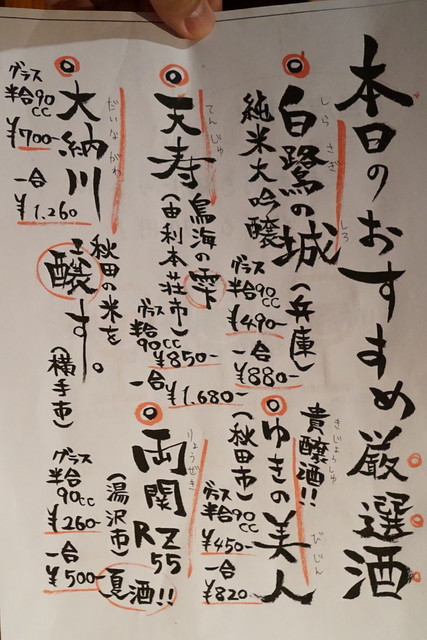 本日のおすすめ厳選酒
白鷺の城
しらさぎ
しろ
純米大吟醸
(兵庫)
グラス
半合90cc
¥490-
一合
¥880-
天寿
てんじゅ
鳥海の雫
(由利本荘市)
グラス
半合90cc
¥850-
一合
¥1.680-
大納川
だいながわ
秋田の米を
醸す。
(横手市)
グラス
半合90cc
¥700-
一合
¥1.260
貴醸酒!!
きじょうしゅ
ゆきの美人
びじん
(秋田市)
グラス
半合90cc
¥450-
一合
¥820-
両関
りょうぜき
RZ55
(湯沢市)
夏酒!!
グラス
半合90cc
¥260-
一合
¥500-